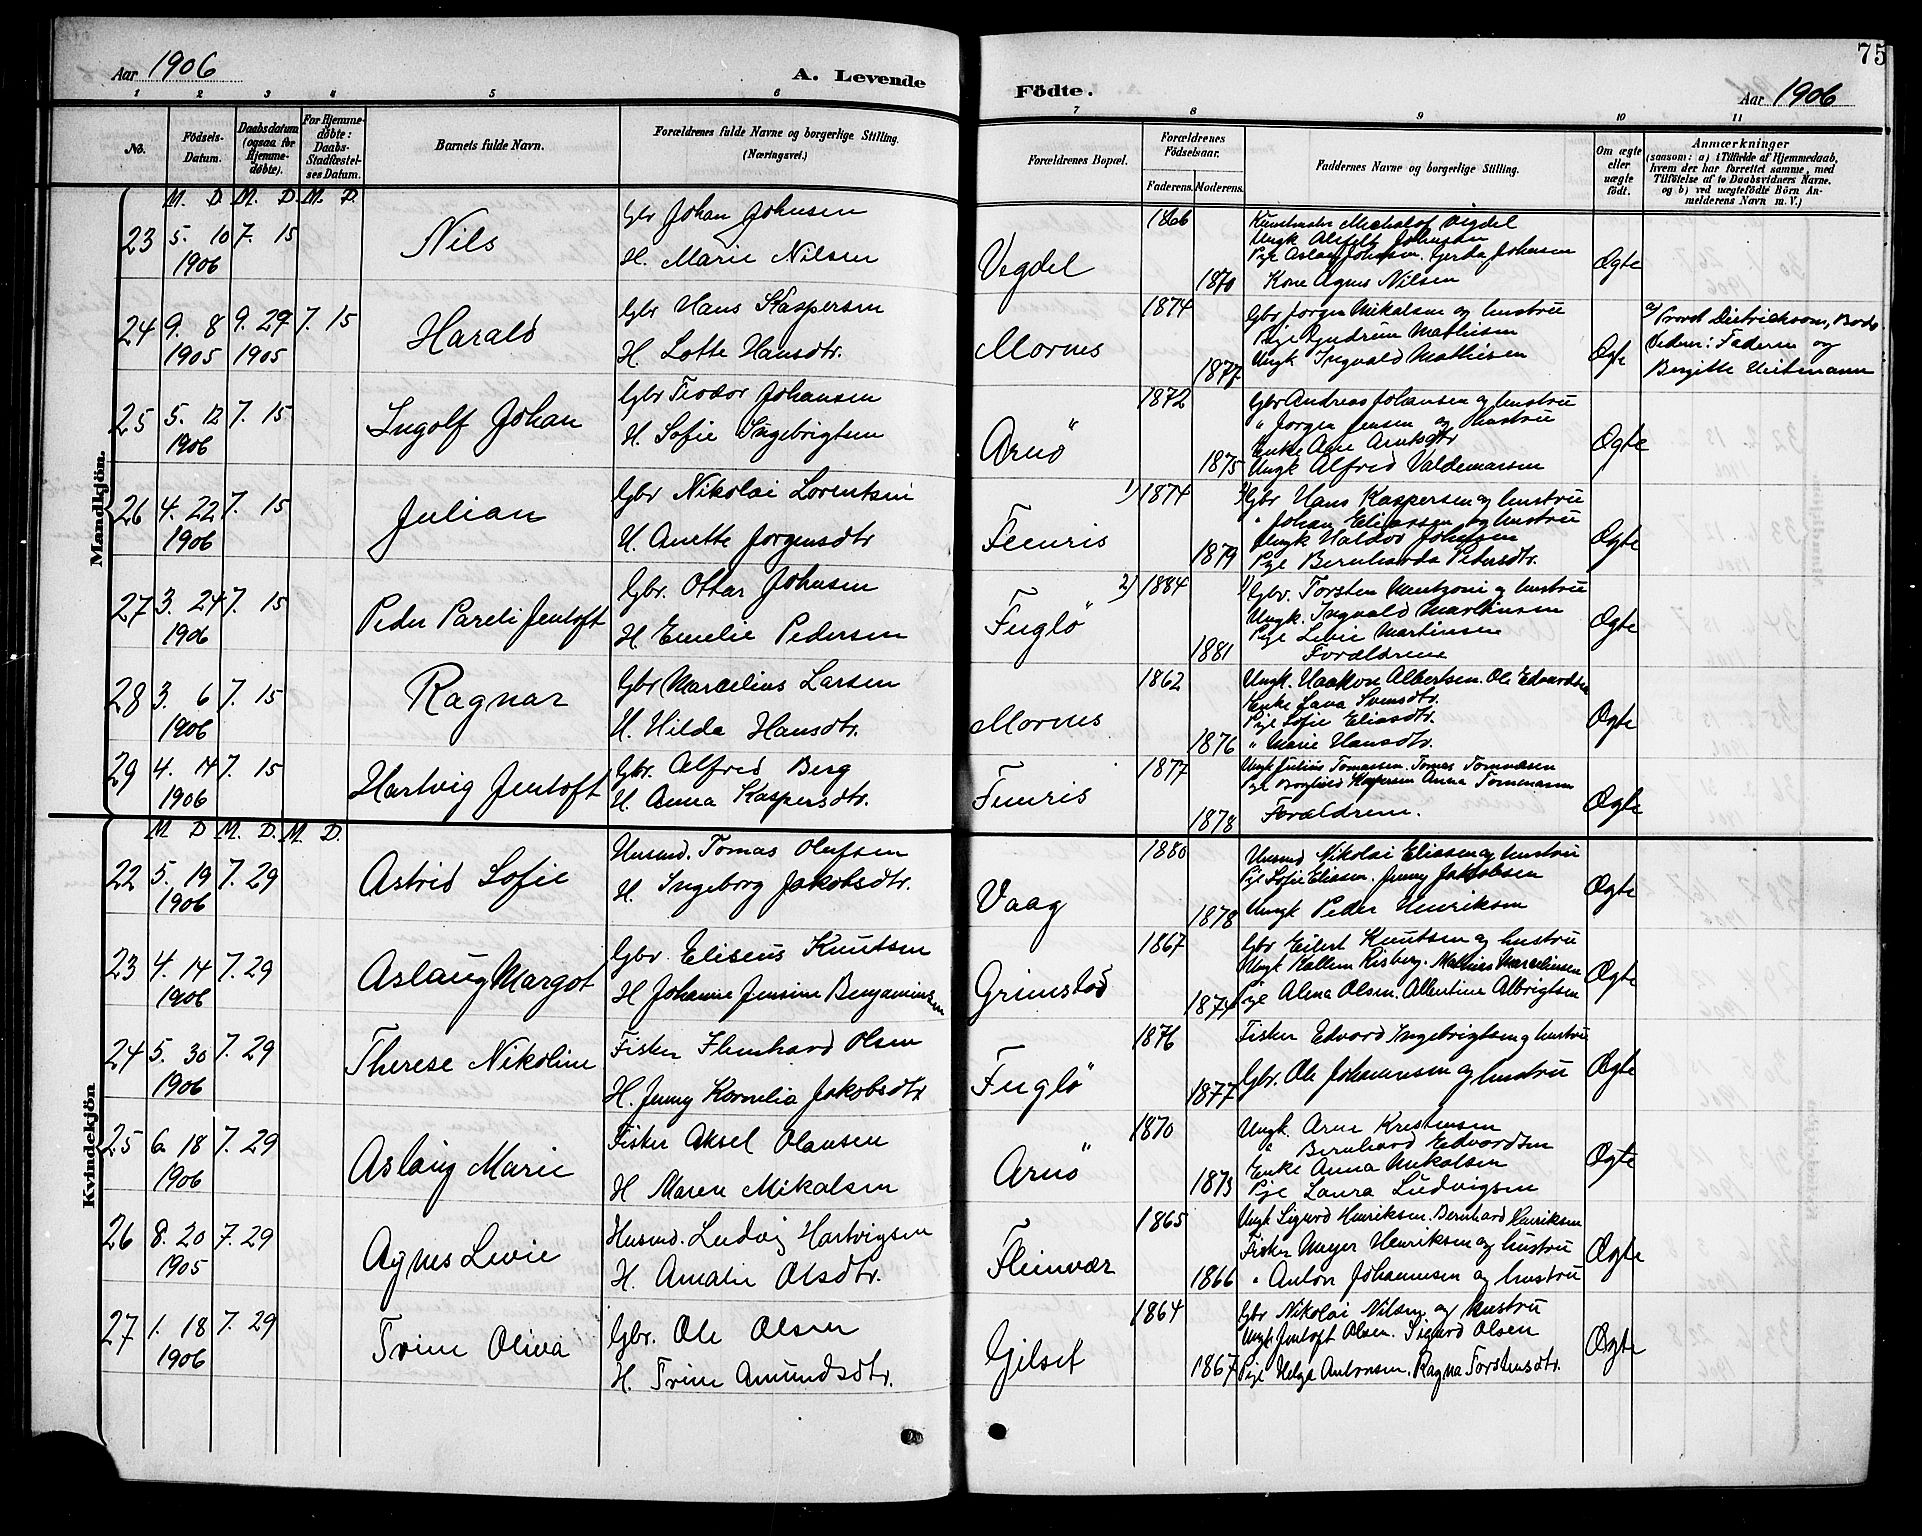 75
Aar 1906
A. Levende
Födte.
Aar 1906
1 2 3 4 5 6 7 8 9 10 11
No.
Födsels-Datum.
Daabsdatum (ogsaa for Hjemme-døbte).
For Hjemme-døbte: Daabs-Stadfæstel-ses Datum.
Barnets fulde Navn.
Forældrenes fulde Navne og borgerlige Stilling.
(Næringsvei.)
Forældrenes Bopæl.
Forældrenes Födselsaar.
Faderens. Moderens.
Faddernes Navne og borgerlige Stilling.
Om ægte eller uægte født.
Anmærkninger
(saasom: a) i Tilfælde af Hjemmedaab,
hvem der har forrettet samme, med
Tilföielse af to Daabsvidners Navne,
og b) ved uægtefödte Börn An-
melderens Navn m. V.)
Mandkjön.
M. D. M. D. M. D.
23 5. 10 1906 7. 15
Nils
Gbr Johan Johnsen
H. Marie Nilsen
Vegdel
1866
1870
Vegdel
Johansen
Kone Agnes Nilsen
Ægte
24 9. 8 1905 9. 29 1905 7. 15
Harald
Gbr Hans Kaspersen
H. Lotte Hansdtr.
Mornes
1874
1877
Gbr Jorgen Mikalsen og hustru
Pige Gyndrun Mathisen
Ungk Ingvald Mathisen
Ægte
a) Provst Dietrichson, Bodø
Faderen og
Birgitte
25 5. 12 1906 7. 15
Ingolf Johan
Gbr Teodor Johansen
H. Sofie Ingebrigtsen
Arnö
1872
1875
Gbr Andreas Johansen og hustru
" Jorgen Jensen og hustru
Enke Ane Arntsdtr
Ungk Alfred Valdemarsen
Ægte
26 4. 22 1906 7. 15
Julian
Gbr Nikolai Lorentsen
H. Anette Jorgensdtr
Femris
1) 1874
1879
Gbr Hans Kaspersen og hustru
" Johan Eliassen og hustru
Ungk Haldor Johnsen
Pige Bernharda Petersdtr.
Ægte
27 3. 24 1906 7. 15
Peder Pareli Jentoft
Gbr. Ottar Johnsen
H. Emelie Pedersen
Fuglö
2) 1884
1881
Gbr. Torsten Hentzoni og hustru
Ungk Ingvald Martinsen
Pige Levie Martinsen
Forældrene
Ægte
28 3. 6 1906 7. 15
Ragnar
Gbr Marcelius Larsen
H. Hilda Hansdtr.
Mornes
1862
1876
Ungk. Haakon Albertsen. Ole Edvardsen
Enke Lava Svensdtr.
Pige Sofie Eliasdtr.
" Marie Hansdtr.
Ægte
29 4. 14 1906 7. 15
Hartvig Jentoft
Gbr. Alfred Berg
H. Anna Kaspersdtr.
Femris
1877
1878
Ungk Julius Tomassen. Tomas Tomassen
Pige Borghild Kaspersen Anna Tommasen
Forældrene.
Ægte
Kvindekjön
M. D. M. D. M. D.
22 5. 19 1906 7. 29
Astrid Sofie
Husmd. Tomas Olufsen
H. Ingeborg Jakobsdtr.
Vaag
1880
1878
Husmd Nikolai Eliasen og hustru
Pige Sofie Eliasen. Jenny Jakobsen
Ungk Peder Henriksen
Ægte
23 4. 14 1906 7. 29
Aslaug Margot
Gbr. Eliseus Knutsen
H Johanne Jensine Benjaminsen
Grimstad
1867
1874
Gbr Eilert Knutsen og hustru
Ungk Kallem Risberg. Mathias Marcelinsen
Pige Alma Olsen. Albertine Albrigtsen
Ægte
24 5. 30 1906 7. 29
Therese Nikoline
Fisker Flenhard Olsen
H. Jenny Kornelia Jakobsdtr
Fuglö
1876
1877
Fisker Edvard Ingebrigtsen og hustru
Gbr. Ole Johannesen og hustru
Ægte
25 6. 18 1906 7. 29
Aslaug Marie
Fisker Aksel Olausen
H Maren Mikalsen
Arnö
1870
1873
Ungk. Arne Kristensen
" Bernhard Edvardsen
Enke Anna Mikalsen
Pige Laura Ludvigsen
Ægte
26 8. 20 1905 7. 29
Agnes Levie
Husmd. Ludvig Hartvigsen
H. Amalie Olsdtr.
Fleinvær
1865
1866
Ungk Sigurd Henriksen. Bernhard Henriksen
Fisker Meyer Henriksen og hustru
" Anton Johannesen og hustru
Ægte
27 1. 18 1906 7. 29
Trine Oliva
Gbr. Ole Olsen
H. Trine Amundsdtr.
Gjelset
1864
1867
Gbr Nikolai Nilsen og hustru
Ungk Jentoft Olsen. Sigurd Olsen
Pige Helga Antonsen. Ragna Torstensdtr.
Ægte